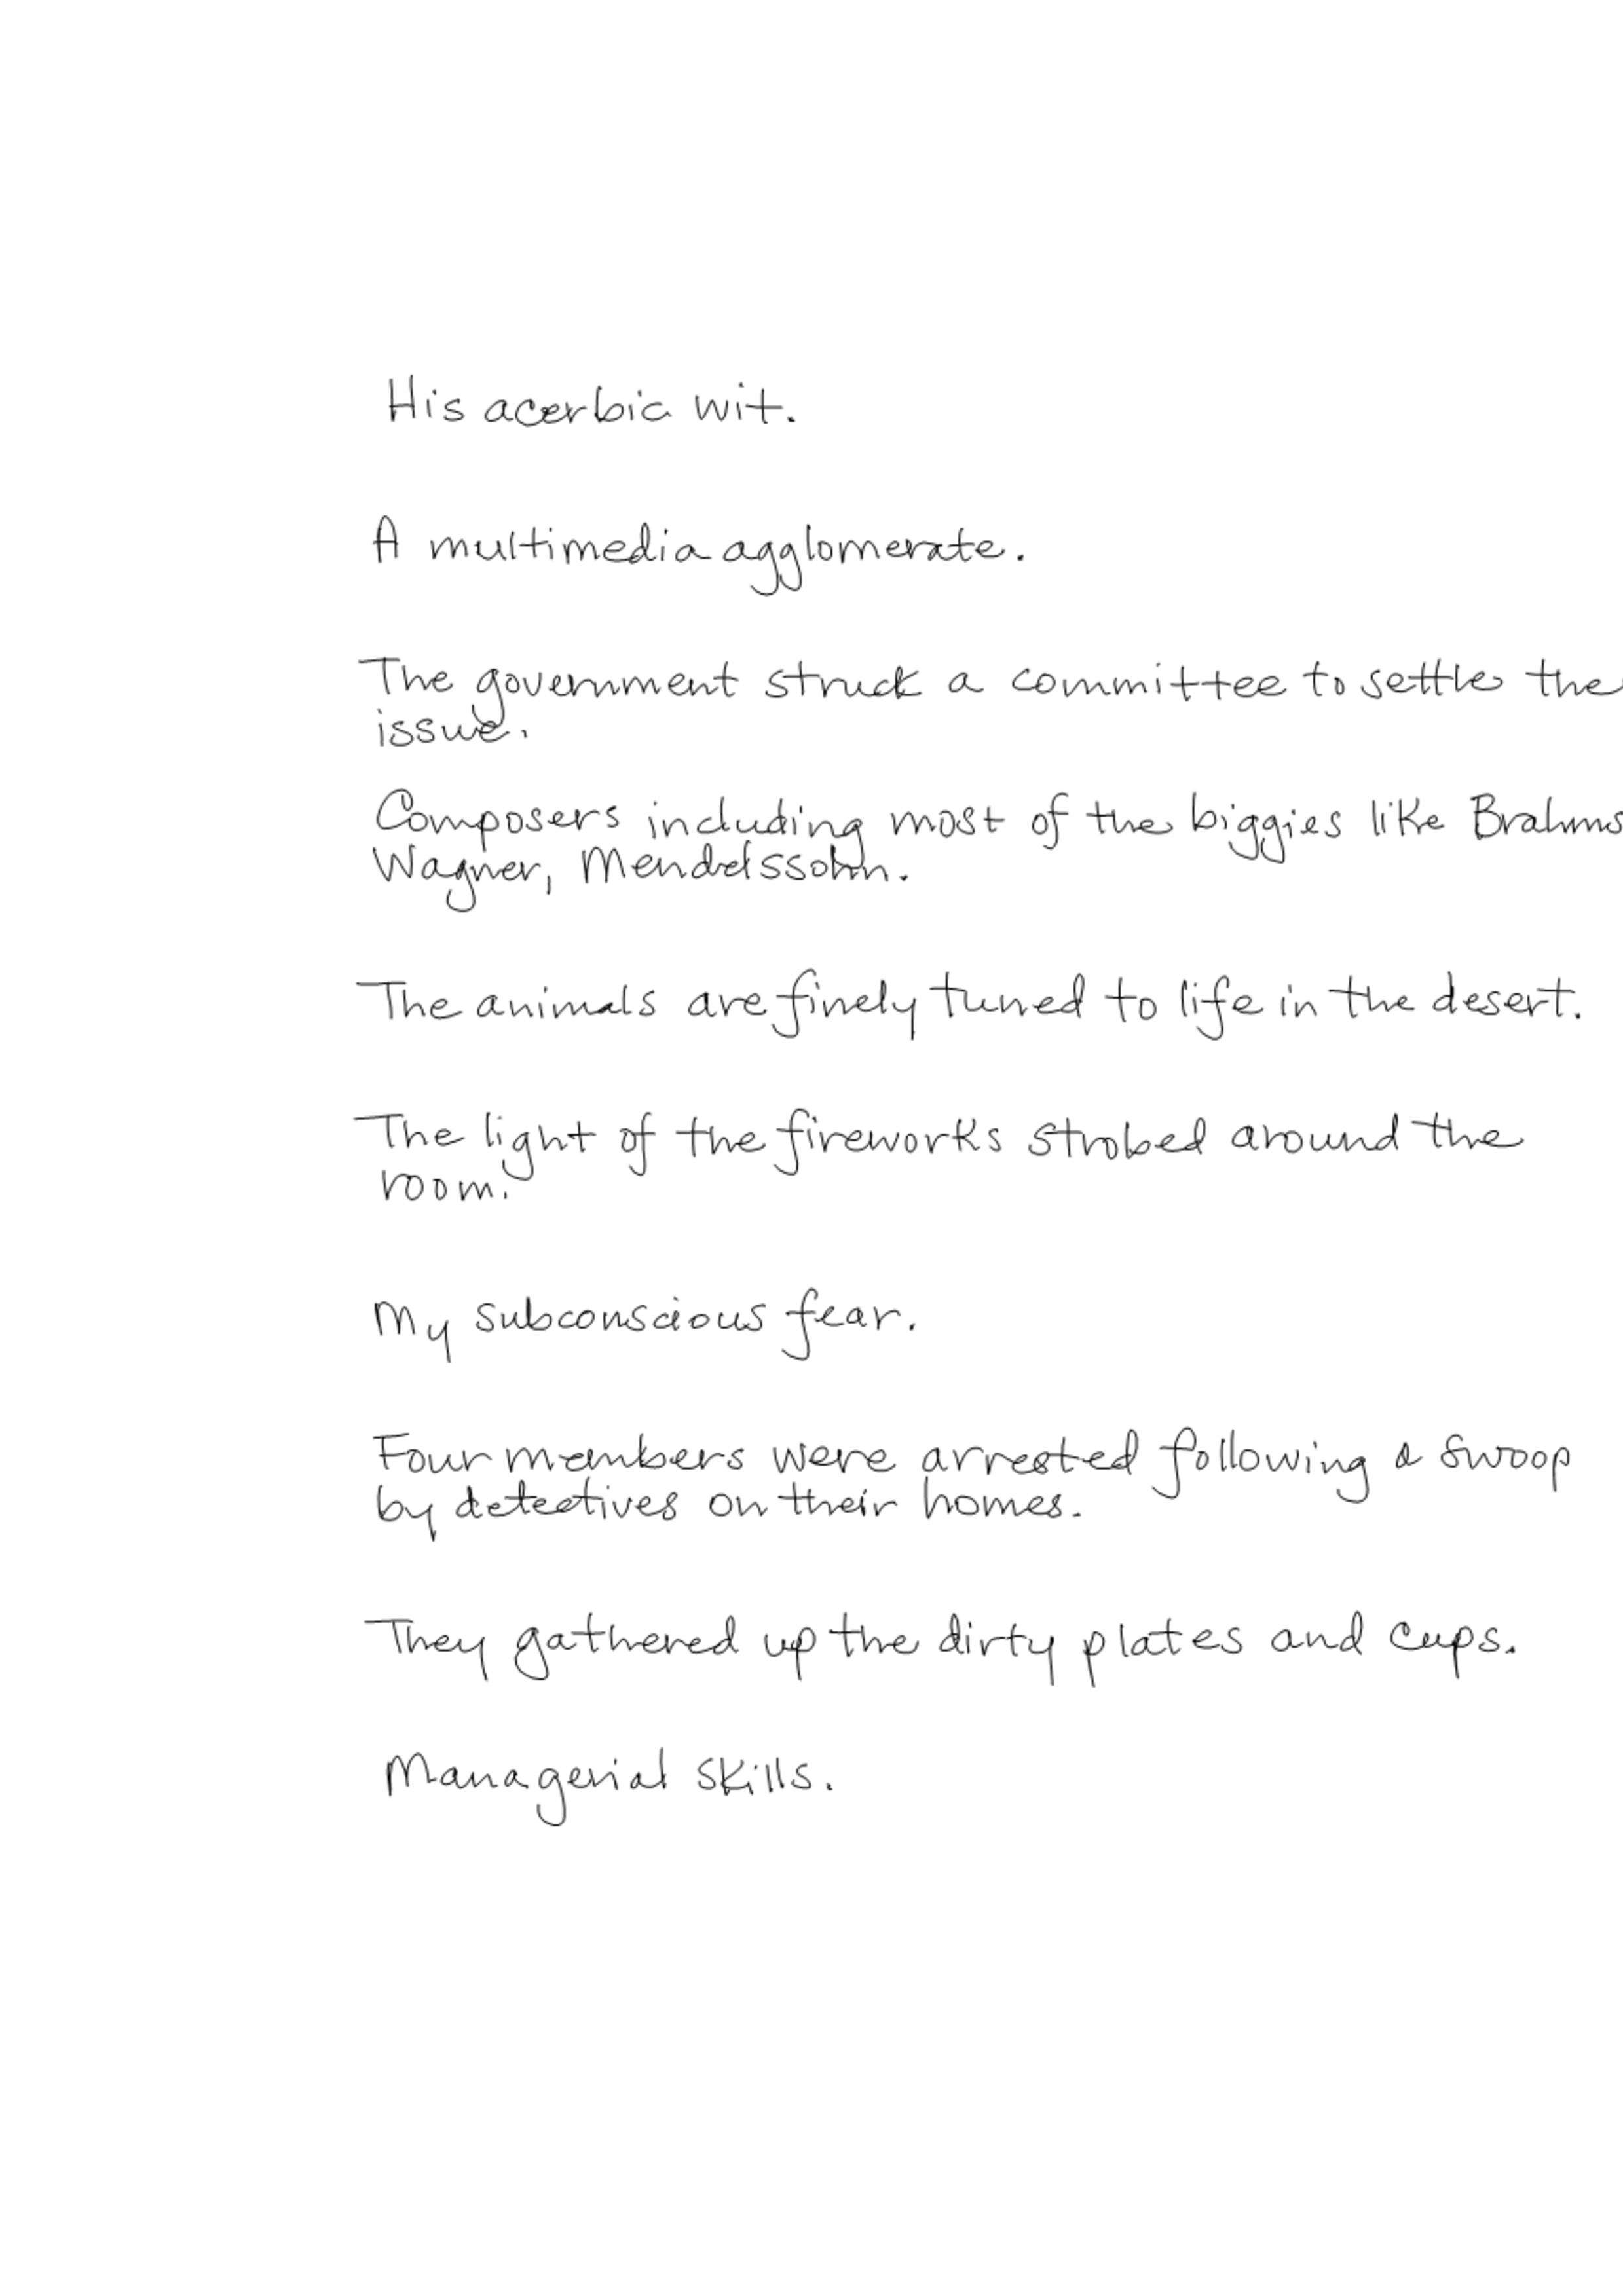 His acerbic wit.
A multimedia agglomerate.
The government struck a committee to settle the
issue.
Composers including most of the biggies like Brahms
Wagner, Mendelssohn.
The animals are finely tuned to life in the desert.
The light of the fireworks strobed around the
room.
My subconscious fear.
Four members were arrested following a swoop
by detectives on their homes.
They gathered up the dirty plates and cups.
Managerial skills.